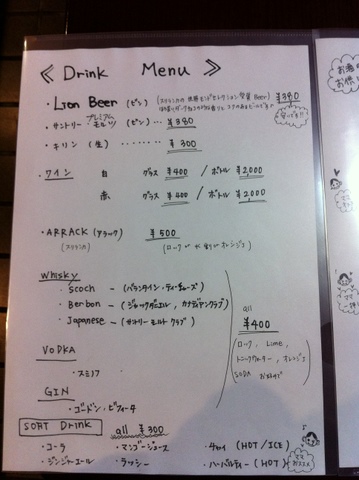 《 Drink Menu 》
・Lion Beer (ビン) (スリランカの Beer) ¥380
・サントリー プレミアムモルツ (ビン)… ¥380
・キリン (生)……… ¥300
・ワイン 白 グラス ¥400 / ボトル ¥2,000
赤 グラス ¥400 / ボトル ¥2,000
・ARRACK (アラック) ¥500
(スリランカ) (ロック オレンジ)
Whisky
・Scoch – (バランタイン・ティーチャーズ)
・Berbon – (ジャックダニエル, カナディアンクラブ)
・Japanese – (サントリー モルト クラブ)
all ¥400
(ロック, Lime,
トニックウォーター, オレンジ
SODA
VODKA
・スミノフ
GIN
・ゴードン・ビフィータ
SOFT Drink all ¥300
・コーラ ・マンゴージュース ・チャイ (HOT/ICE)
・ジンジャーエール ・ラッシー ・ハーバルティー (HOT)
ママ
おススメ